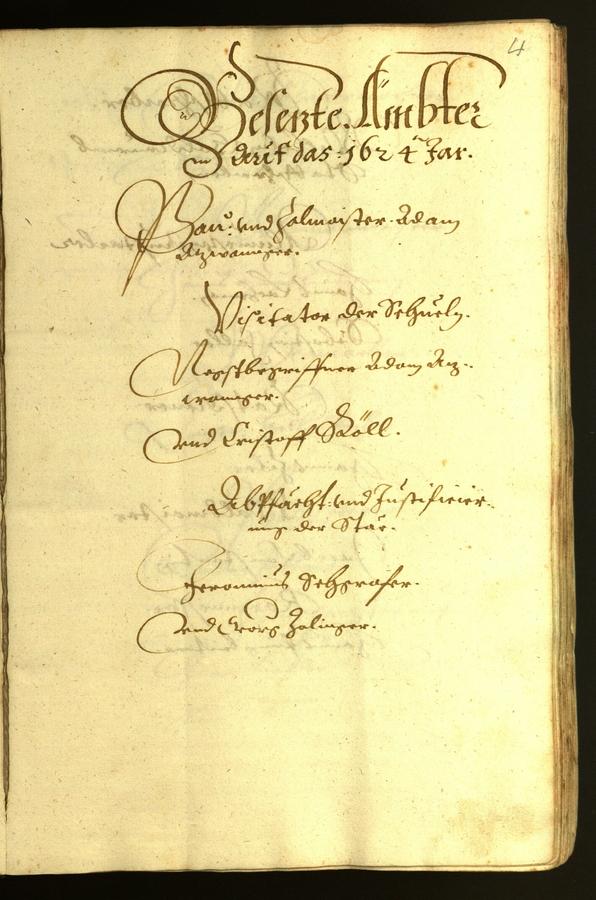 4
Besetzte Ämbter
auf das 1624 Jar.
Pau: und Zolmaister Adam
Anzwanger.
Visitator der Schueln.
Negstbegriffner Adam Anz-
wanger.
und Cristoff Röll.
Abpfächt und Justificier-
ung der Stär.
Jeronimus Schgrafer.
und Georg Zalinger.